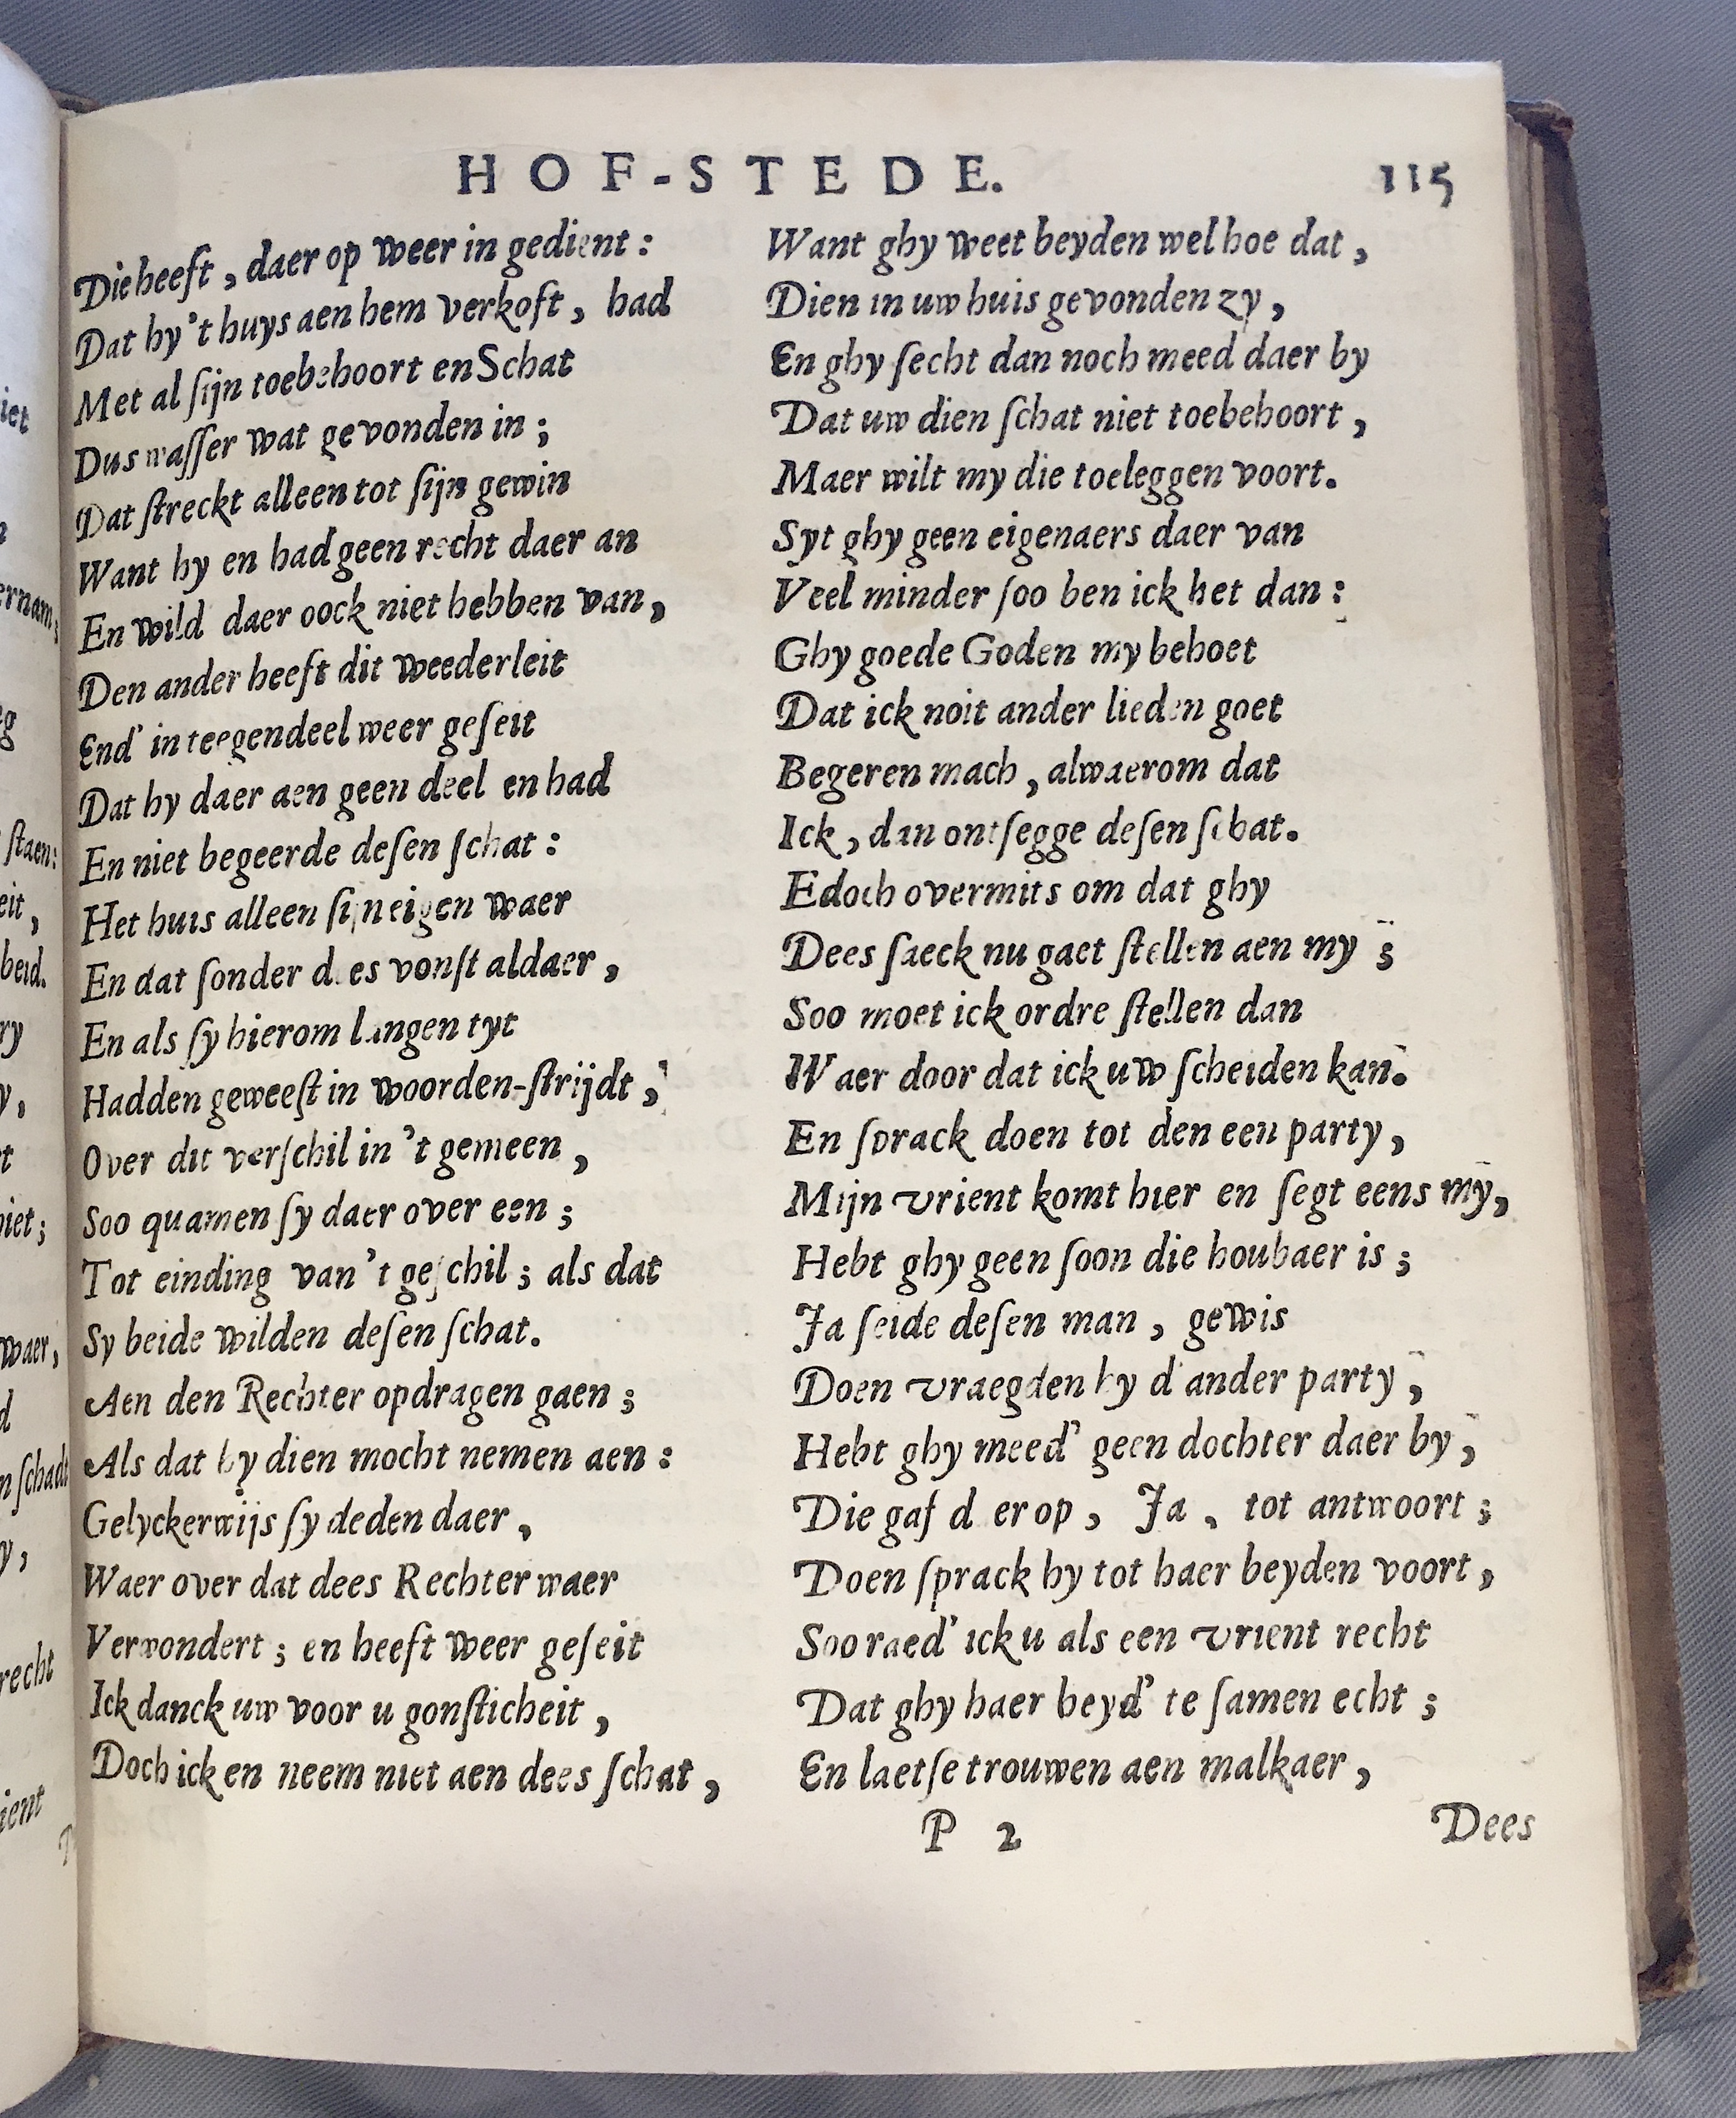 HOF-STEDE. 115
Die heeft, daer op weer in gedient:
Dat hy 't huys aen hem verkoft, had
Met al ſijn toebehoort en Schat
Dus waſſer wat gevonden in;
Dat ſtreckt alleen tot ſijn gewin
Want hy en had geen recht daer an
En wild daer oock niet hebben van,
Den ander heeft dit weederleit
End' in teegendeel weer geſeit
Dat hy daer aen geen deel en had
En niet begeerde deſen ſchat:
Het huis alleen ſijn eigen waer
En dat ſonder dees vonſt aldaer,
En als ſy hierom langen tyt
Hadden geweeſt in woorden-ſtrijdt,
Over dit verſchil in 't gemeen,
Soo quamen ſy daer over een;
Tot einding van 't geſchil; als dat
Sy beide wilden deſen ſchat.
Aen den Rechter opdragen gaen;
Als dat hy dien mocht nemen aen:
Gelyckerwijs ſy deden daer,
Waer over dat dees Rechter waer
Verwondert; en heeft weer geſeit
Ick danck uw voor u gonſticheit,
Doch ick en neem niet aen dees ſchat,
Want ghy weet beyden wel hoe dat,
Dien in uw huis gevonden zy,
En ghy ſecht dan noch meed daer by
Dat uw dien ſchat niet toebehoort,
Maer wilt my die toeleggen voort.
Syt ghy geen eigenaers daer van
Veel minder ſoo ben ick het dan:
Ghy goede Goden my behoet
Dat ick noit ander lieden goet
Begeren mach, alwaerom dat
Ick, dan ontſegge deſen ſchat.
Edoch overmits om dat ghy
Dees ſaeck nu gaet ſtellen aen my;
Soo moet ick ordre ſtellen dan
Waer door dat ick uw ſcheiden kan.
En ſprack doen tot den een party,
Mijn vrient komt hier en ſegt eens my,
Hebt ghy geen ſoon die houbaer is;
Ja ſeide deſen man, gewis
Doen vraegden hy d'ander party,
Hebt ghy meed' geen dochter daer by,
Die gaf d er op, Ja, tot antwoort;
Doen ſprack hy tot haer beyden voort,
Soo raed' ick u als een vrient recht
Dat ghy haer beyd' te ſamen echt;
En laet ſe trouwen aen malkaer,
P 2 Dees